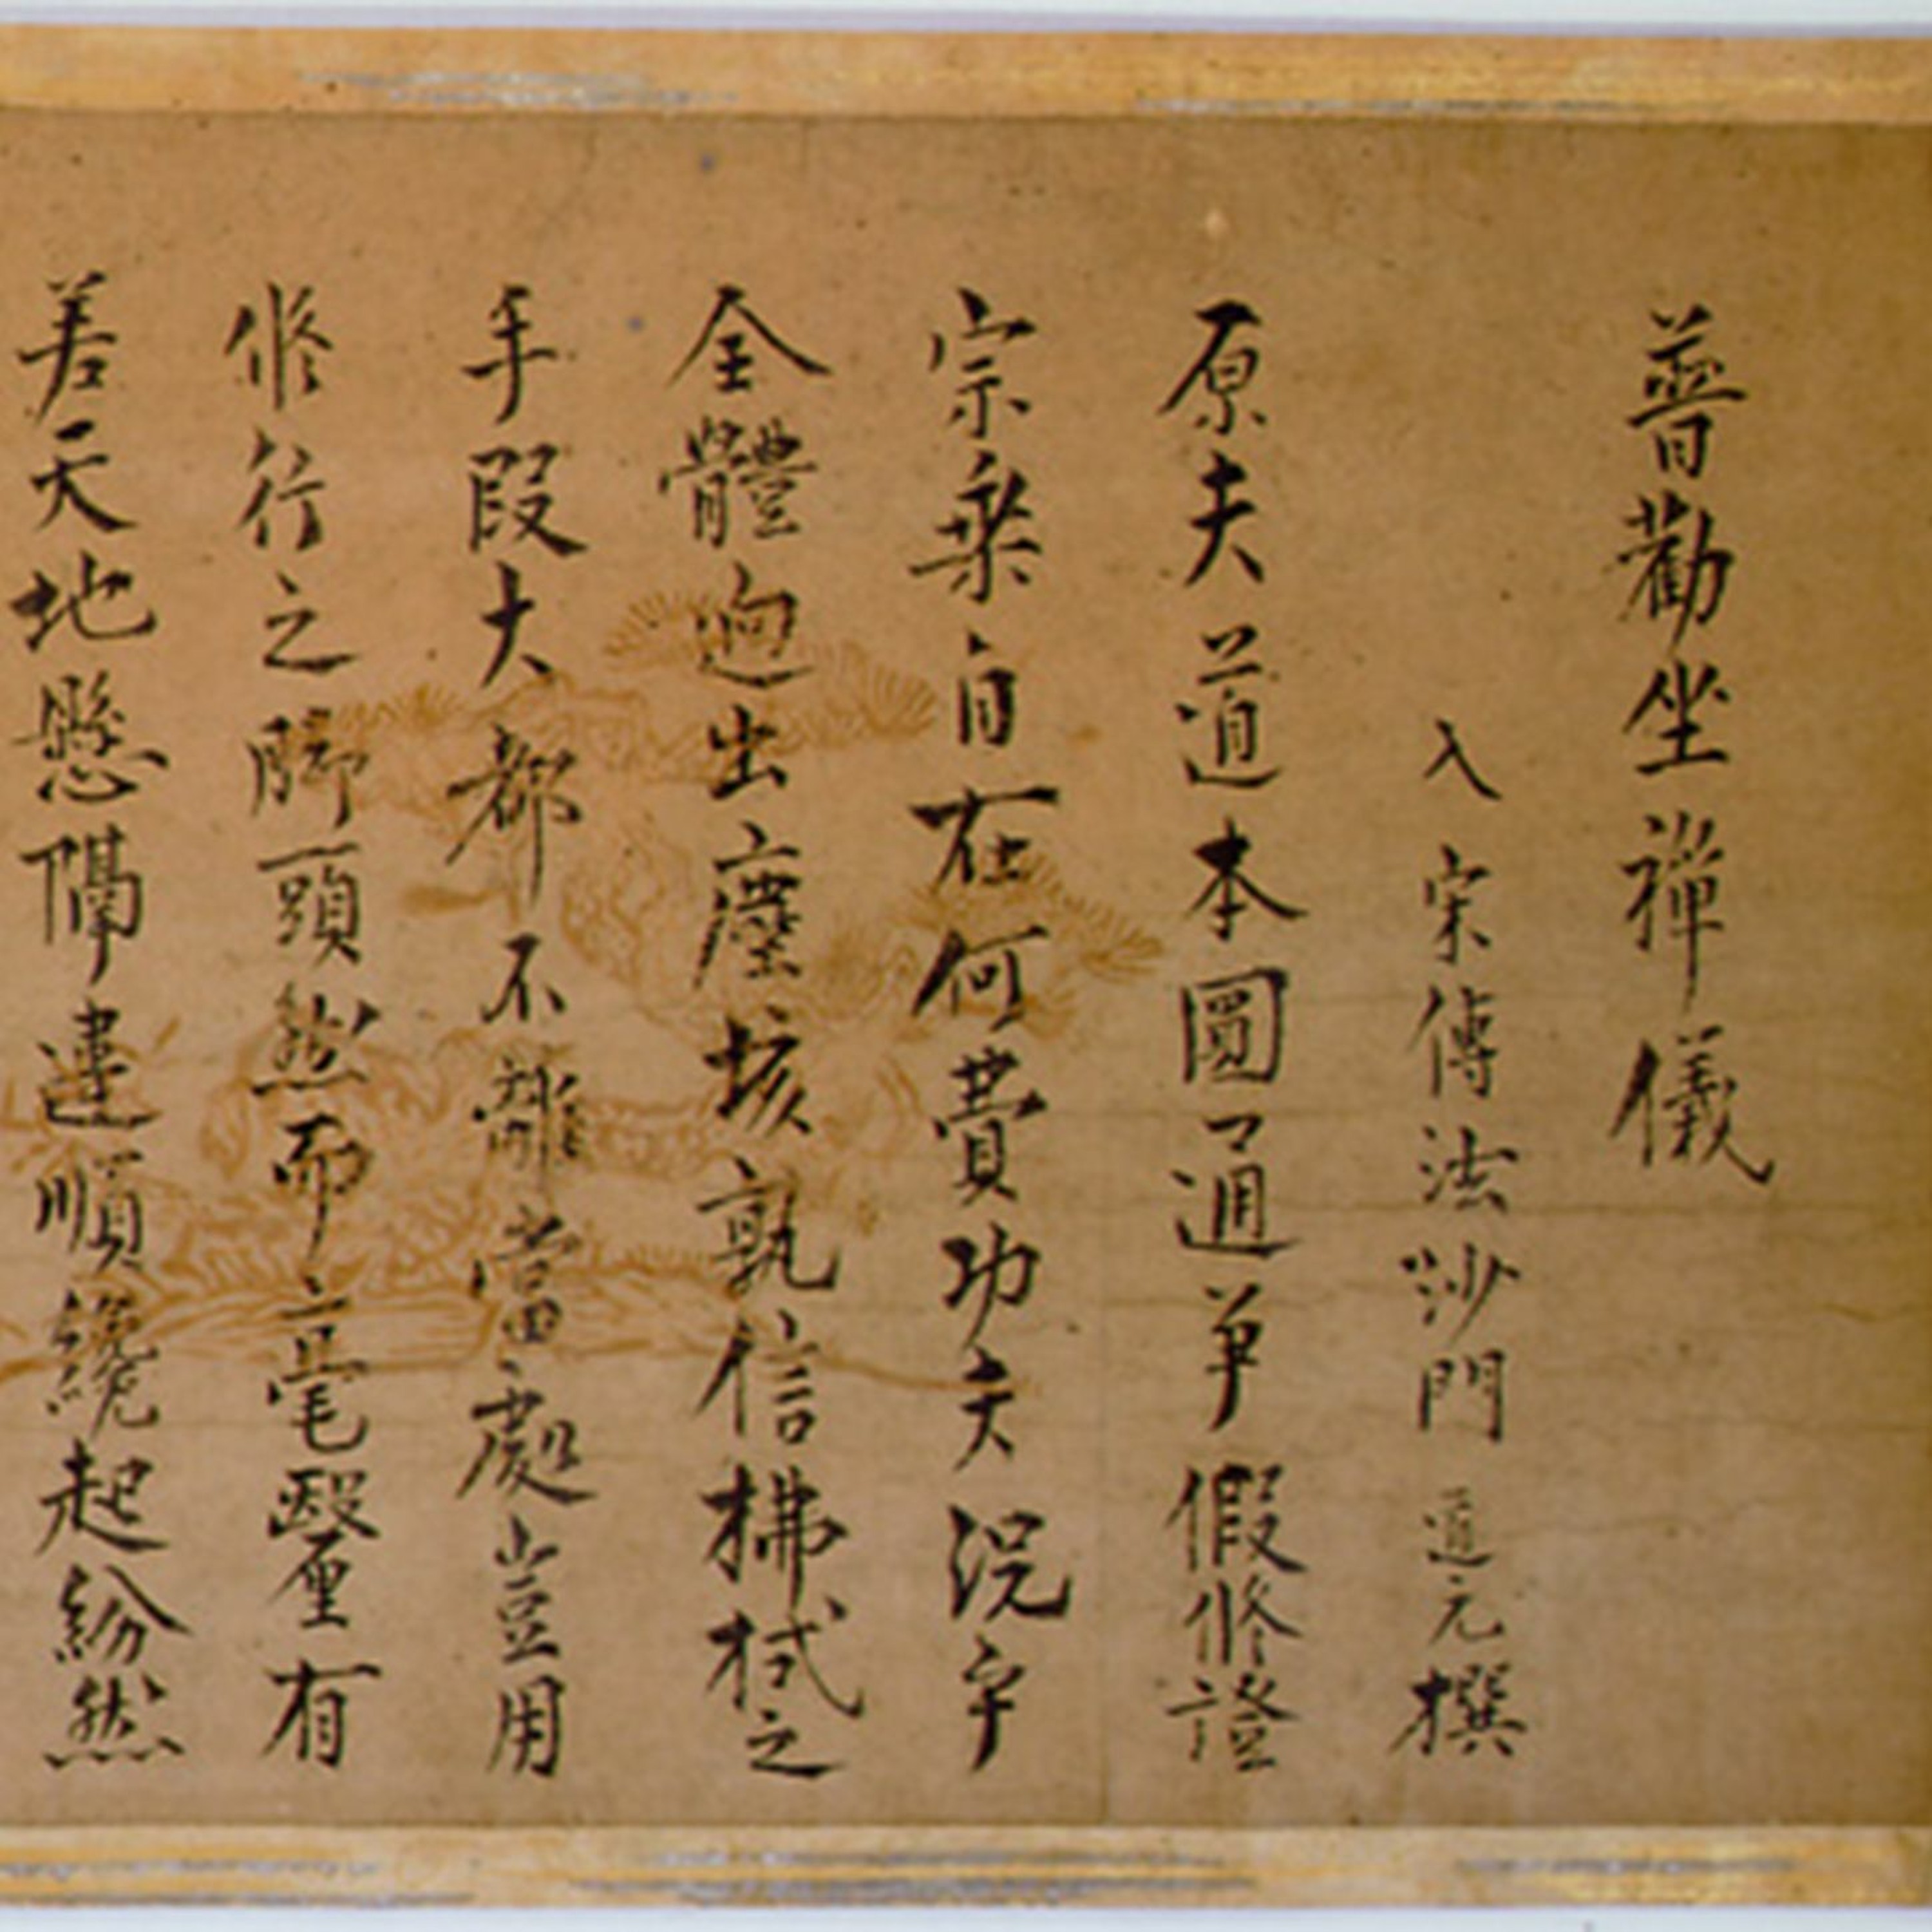 普勸坐禪儀
入宋傳法沙門道元撰
原夫道本圓通爭假修證
宗乘自在何費功夫況乎
全體逈出塵埃孰信拂拭之
手段大都不離當處豈用
修行之脚頭然而毫釐有
差天地懸隔違順纔起紛然